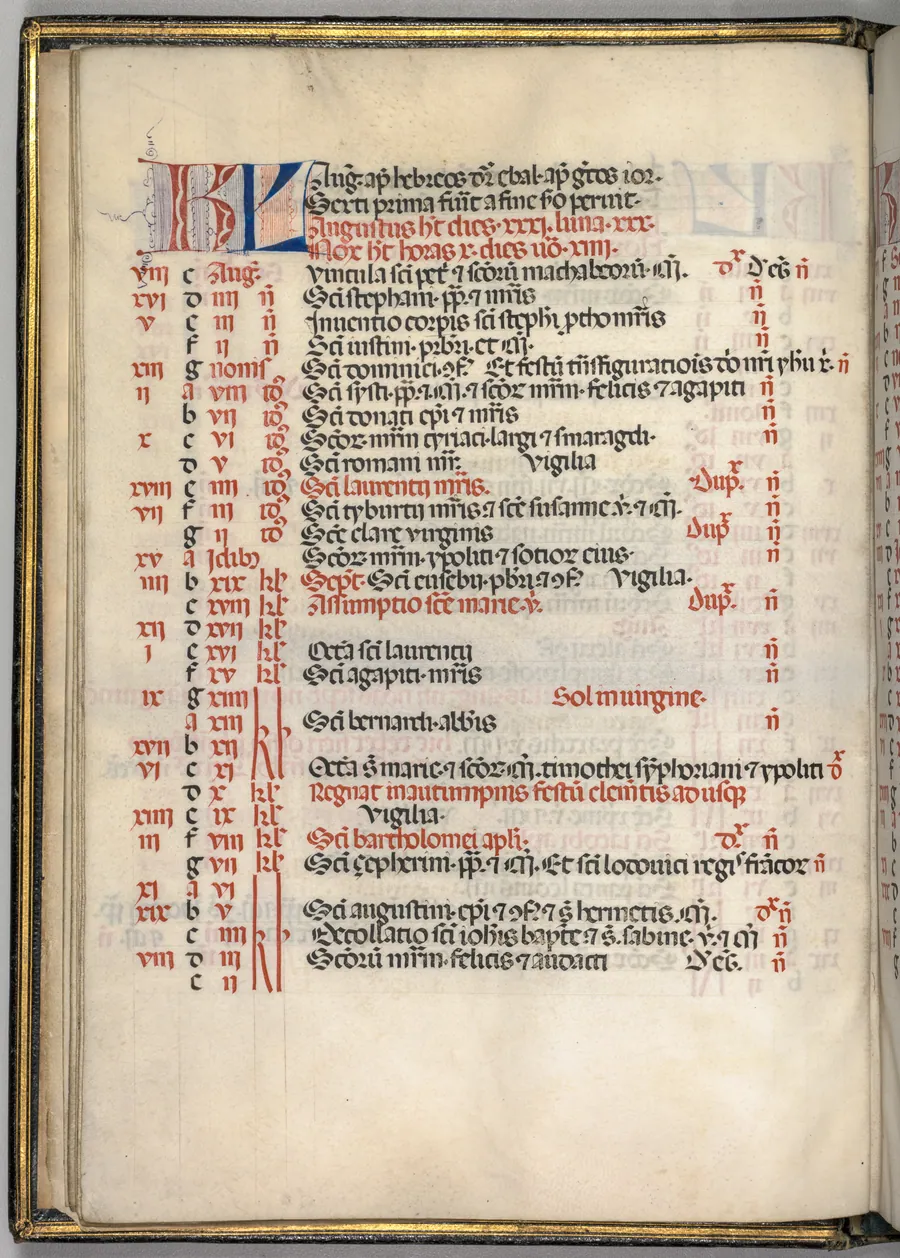 KL Aug. ap hebreos dr ebal. ap gtos ior.
Sexti prima fuit a fine subito perurit.
Augustus ht dies. xxxi. luna. xxx.
Nox ht horas x. dies uo. xiiii.
viii c Aug. Vincula sci pet ⁊ scorū machabeorū. m. n
xvi d iiii n Sci stephani. pp. ⁊ mris n
v e iii n Inuentio corpis sci stephi pthomris n
f ii n Sci iustini. prbri. et n
xiii g nonis Sci dominici. Et festū tnsfiguratiois dni nri yhu x. n
ii a viii id Sci systi. pp. ⁊ scor mrm. felicis ⁊ agapiti n
b vii id Sci donati epi ⁊ mris n
x c vi id Scor mrm cyriaci. largi ⁊ smaragdi. n
d v id Sci romani mr. vigilia
xviii e iiii id Sci laurentij mris. Dup. n
vii f iii id Sci tyburtij mris ⁊ sce susanne v. ⁊ m. n
g ii id Sce clare virginis Dup n
xv a Idib Scor mrm. ypoliti ⁊ socior eius. n
iiii b xix kl Sept. Sci eusebij. pbri. ⁊ Vigilia.
c xviii kl Assumptio sce marie. v. Dup. n
xii d xvii kl
i e xvi kl Octa sci laurentij n
f xv kl Sci agapiti. mris n
ix g xiiii kl Sol in uirgine.
a xiii Sci bernardi. abbis n
xvii b xii
vi c xi Octa s marie. ⁊ scor. m. timothei symphoriani ⁊ ypoliti
d x kl Regnat in autumpnis festū clemtis ad usq
xiiii e ix kl Vigilia.
iii f viii kl Sci bartholomei apli. n
g vii kl Sci çepherini. pp. ⁊ m. Et sci lodouici regis francor n
xi a vi kl
xix b v Sci augustini. epi ⁊ ⁊ s hermetis. m. n
c iiii Decollatio sci iohis bapte ⁊ s. sabine. v. ⁊ m n
viii d iii Scorū mrm. felicis ⁊ audacti n
e ii